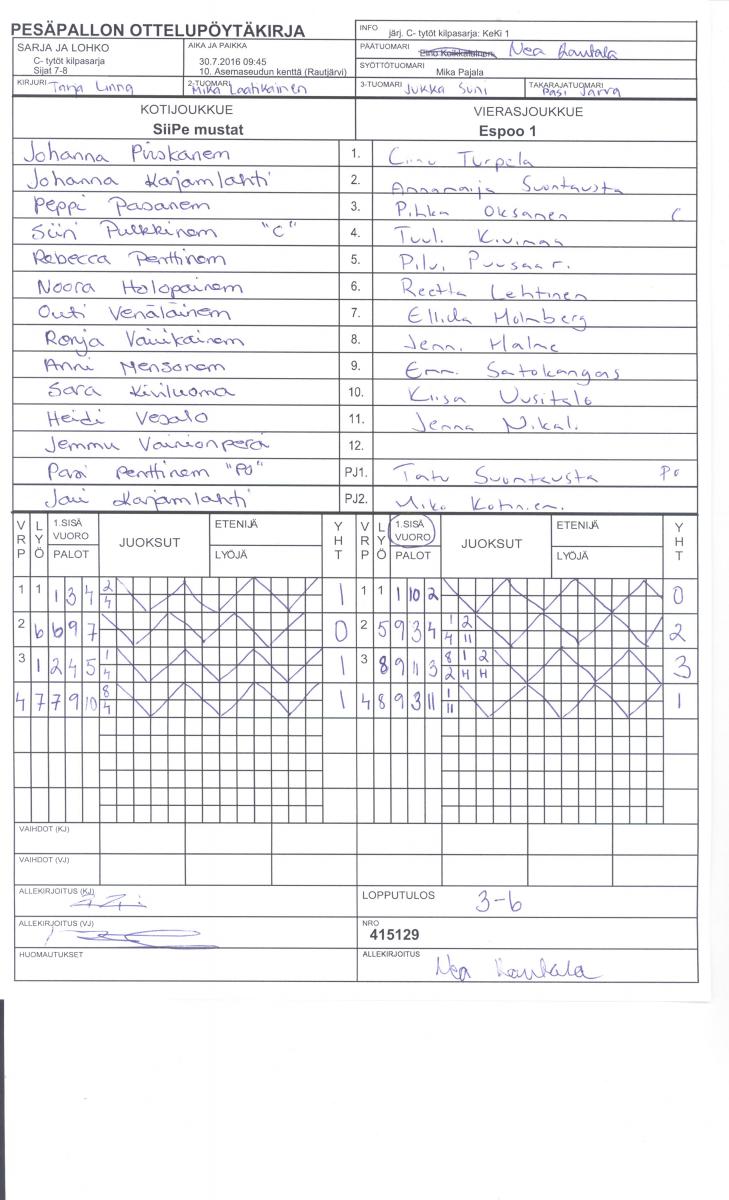 PESÄPALLON OTTELUPÖYTÄKIRJA
INFO järj. C- tytöt kilpasarja: KeKi 1
SARJA JA LOHKO
C- tytöt kilpasarja
Sijat 7-8
AIKA JA PAIKKA
30.7.2016 09:45
10. Asemaseudun kenttä (Rautjärvi)
PÄÄTUOMARI Nea Rautala
SYÖTTÖTUOMARI
Mika Pajala
KIRJURI Tarja Linna
2-TUOMARI Mika Laatikainen
3-TUOMARI Jukka Suni
TAKARAJATUOMARI Pasi Jarra
KOTIJOUKKUE
SiiPe mustat
VIERASJOUKKUE
Espoo 1
Johanna Piiskanem 1. Turpela
Johanna Karjamlahti 2. Annamaija Suontausta
Peppi Pasanem 3. Pihka Oksanen C
Siiri Pulkkinem "C" 4.
Rebecca Penttinem 5.
Noora Holopainem 6. Reetta Lehtinen
Outi Venäläinem 7. Holmberg
Ronja Vainikainem 8. Jenni Halme
Anni Mensonem 9. Emmi Satokangas
Sara Kiviluoma 10. Kiisa Uusitalo
Heidi Vesalo 11. Jenna Nikal.
Jemmu Vainionperä 12.
Pasi Penttinem "PJ" PJ1. Tatu Suontausta
Jari Karjamlahti PJ2.
VRP LYÖ 1.SISÄ VUORO PALOT JUOKSUT ETENIJÄ LYÖJÄ YHT VRP LYÖ 1.SISÄ VUORO PALOT JUOKSUT ETENIJÄ LYÖJÄ YHT
1 1 1 3 4 2/4 1 1 1 1 10 2 0
2 6 6 9 7 0 2 5 9 3 4 1/4 2/11 2
3 1 2 4 5 1/4 1 3 8 9 11 3 8/2 1/H 2/H 3
4 7 7 9 10 8/4 1 4 8 9 3 11 1/11 1
VAIHDOT (KJ)
VAIHDOT (VJ)
ALLEKIRJOITUS (KJ)
LOPPUTULOS 3-6
ALLEKIRJOITUS (VJ)
NRO
415129
HUOMAUTUKSET
ALLEKIRJOITUS Nea Rautala